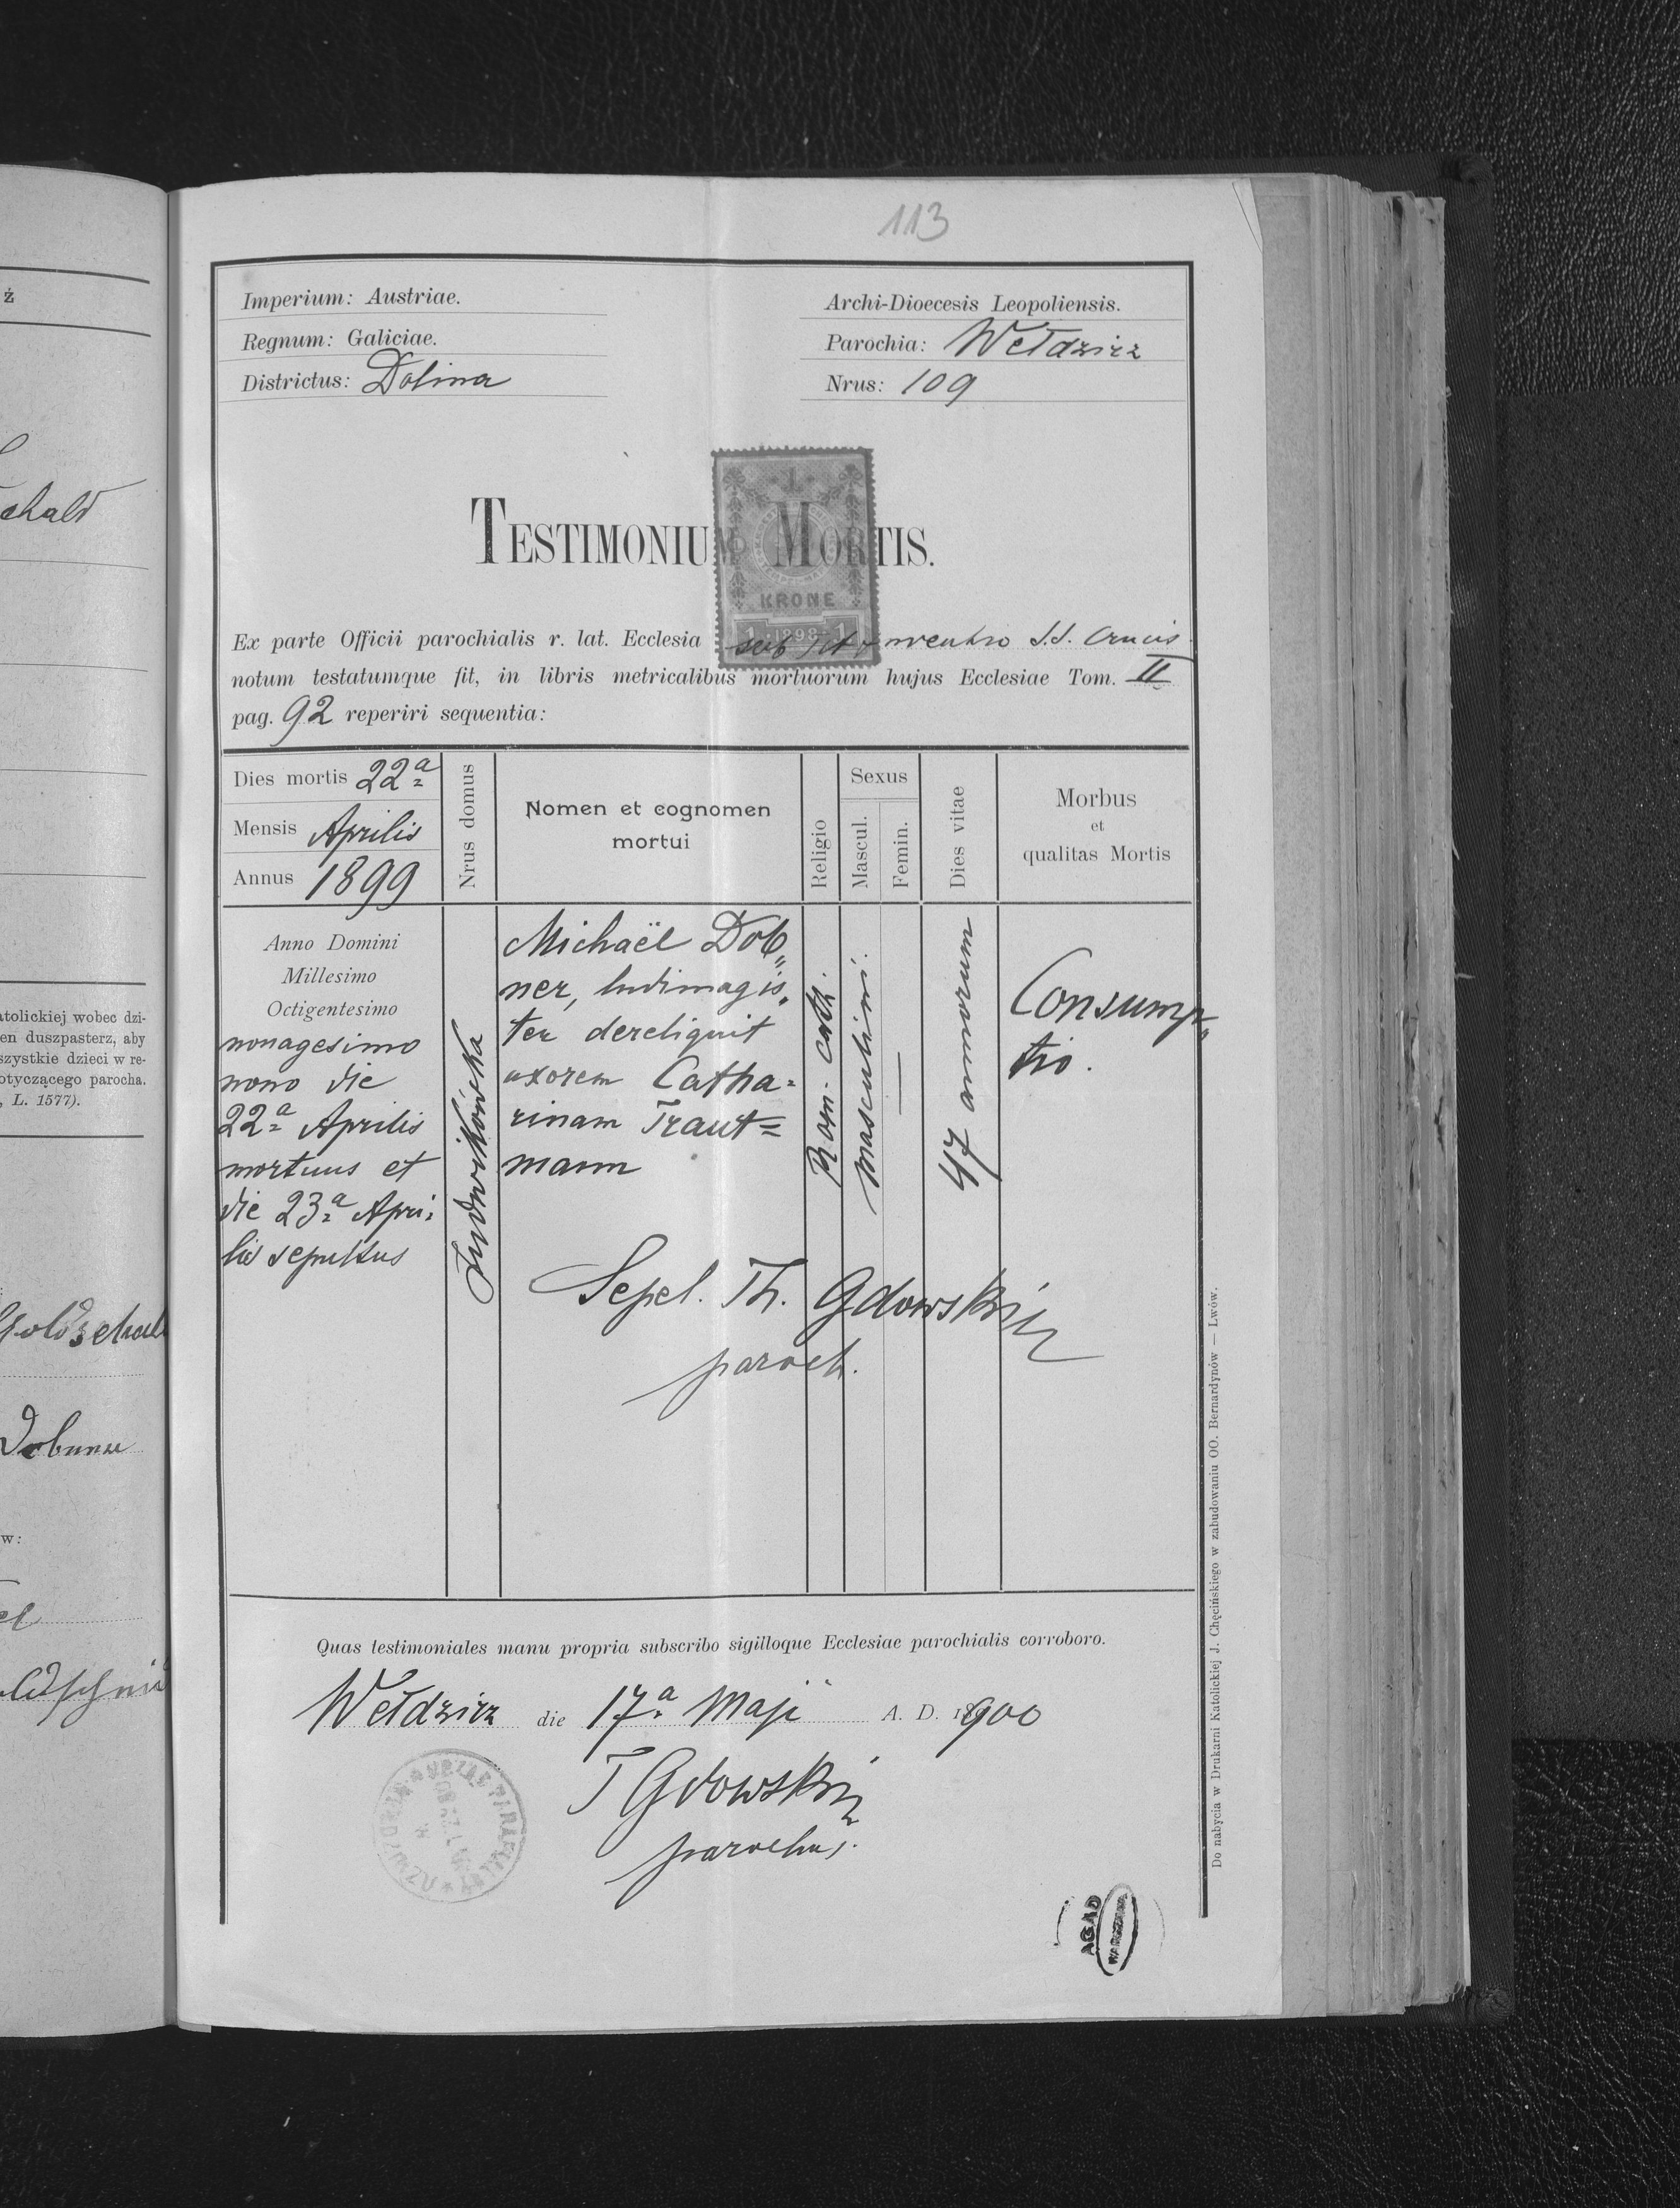 113
Imperium: Austriae.
Archi-Dioecesis Leopoliensis.
Regnum: Galiciae.
Parochia: Wełdzirz
Districtus: Dolina
Nrus: 109
TESTIMONIUM MORTIS.
KRONE
1 1898 1
Ex parte Officii parochialis r. lat. Ecclesia sub tit. inventio S.S. Crucis
notum testatumque fit, in libris metricalibus mortuorum hujus Ecclesiae Tom. II
pag. 92 reperiri sequentia:
Dies mortis 22ª
Mensis Aprilis
Annus 1899
Nrus domus
Nomen et cognomen
mortui
Religio
Sexus
Mascul.
Femin.
Dies vitae
Morbus
et
qualitas Mortis
Anno Domini
Millesimo
Octigentesimo
nonagesimo
nono die
22ª Aprilis
mortuus et
die 23ª Apri:
lis sepultus
Ludwikówka
Michaël Dob„
ner, ludimagis„
ter dereliquit
uxorem Catha=
rinam Traut=
mann
Rom. cath.
masculini.
—
47 annorum
Consump„
tio.
Sepel. Th. Gdowski
paroch.
Quas testimoniales manu propria subscribo sigilloque Ecclesiae parochialis corroboro.
Wełdzirz die 17ª Maji A. D. 1900
T Gdowski
parochus.
Do nabycia w Drukarni Katolickiej J. Chęcińskiego w zabudowaniu OO. Bernardynów — Lwów.
AGAD
WARSZAWA
ż
chald
atolickiej wobec dzi-
en duszpasterz, aby
szystkie dzieci w re-
otyczącego parocha.
, L. 1577).
w: